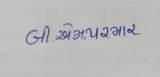 બી.એમ.પરમાર